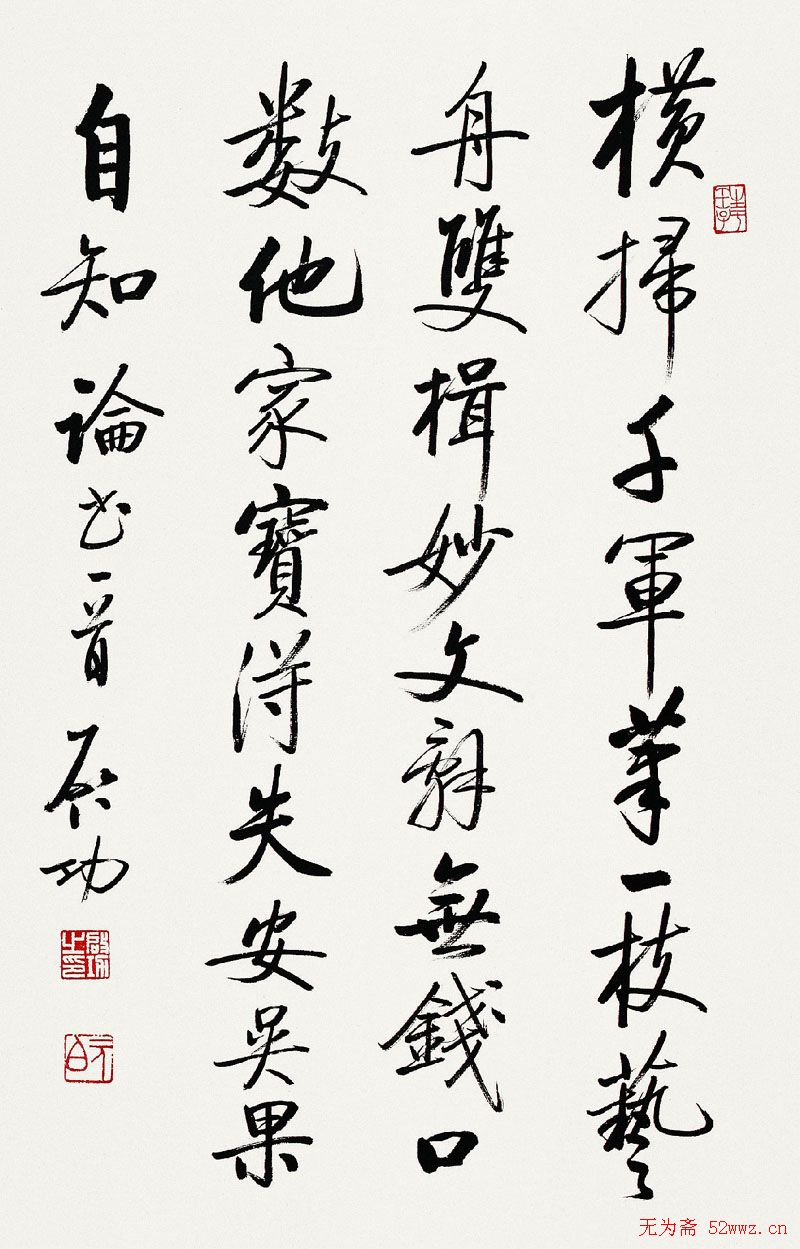 橫掃千軍筆一枝藝
舟雙楫妙文辭無錢口
數他家寶得失安吳果
自知論書一首启功
啟功之印
元白
无为斋 52wwz.cn